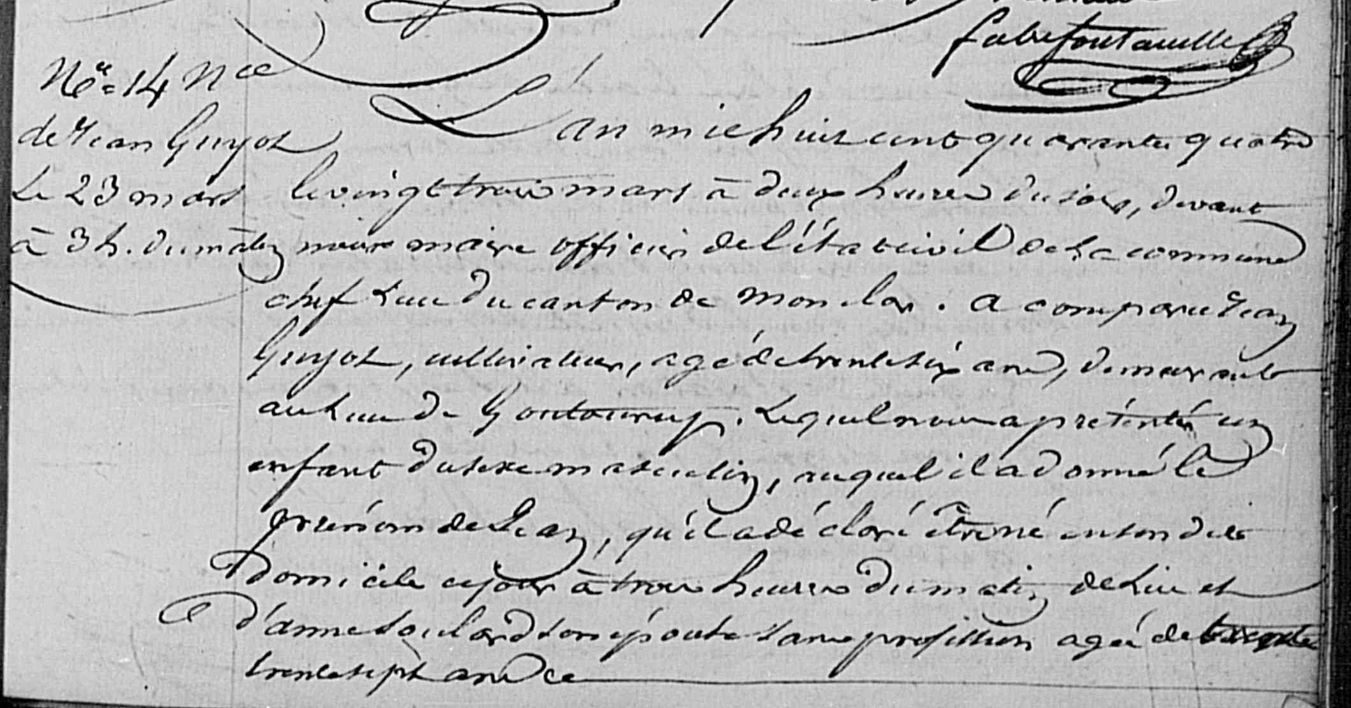 fabefontanille
Nº 14 Nce
de Jean Guyot
Le 23 mars
à 3 h. du matin
L'an mil huit cent quarante quatre
le vingt trois mars à deux heures du soir, devant
nous maire officier de l'état civil de la commune
chef lieu du canton de Monclar. a comparu Jean
Guyot, cultivateur, agé de trente six ans, demeurant
au lieu de. Lequel nous a présenté un
enfant du sexe masculin, auquel il a donné le
prénom de Jean, qu'il a déclaré être né en son dit
domicile ce jour à trois heures du matin de lui et
d'anne Soulard son épouse sans profession agée de
trente sept ans ce